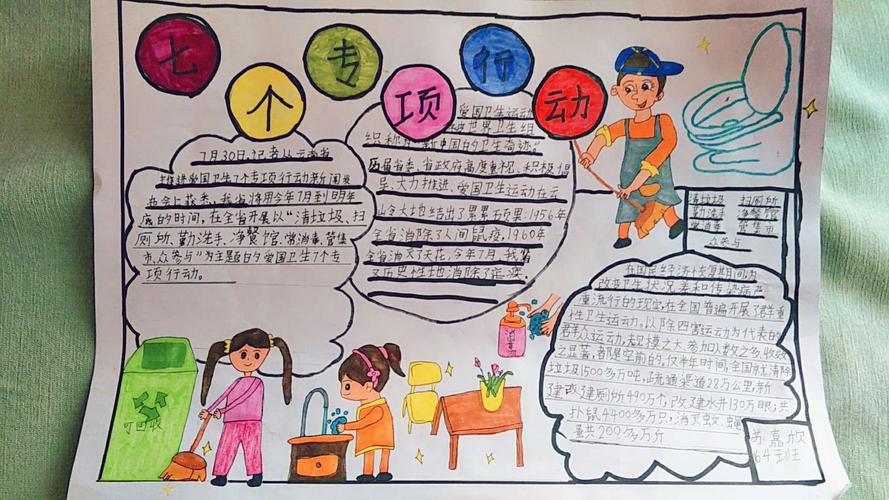 七个专项行动
7月30日,记者从云南省
推进爱国卫生7个专项行动新闻发
布会上获悉,我省将用今年7月到明年
底的时间,在全省开展以“清垃圾、扫
厕所、勤洗手、净餐馆、常消毒、管集
市、众参与”为主题目的爱国卫生7个专
项行动。
爱国卫生运动
被世界卫生组
织称作“新中国的卫生奇迹。”
历届省委、省政府高度重视、积极倡
导、大力推进、爱国卫生运动在云
岭大地结出了累累硕果:1956年
全省消除了人间鼠疫,1960年
全省消灭了天花,今年7月,我省
又历史性地消除了疟疾。
清垃圾 扫厕所
勤洗手 净餐馆
常消毒 管集市
众参与
在国民经济恢复期间,为
改变卫生状况差和传染病严
重流行的现实,在全国普遍开展了群众
性卫生运动。以除四害运动为代表的
群众运动,规模之大,参加人数之多,收效
之显著,都是空前的,仅半年时间,全国就清除
垃圾1500多万吨,疏通渠道28万公里,新
建改建厕所490万个,改了建水井130万眼;共
扑鼠4400多万只,消灭蚊、蝇、
蚤共200多万斤
消毒
可回收
苏嘉欣
64班